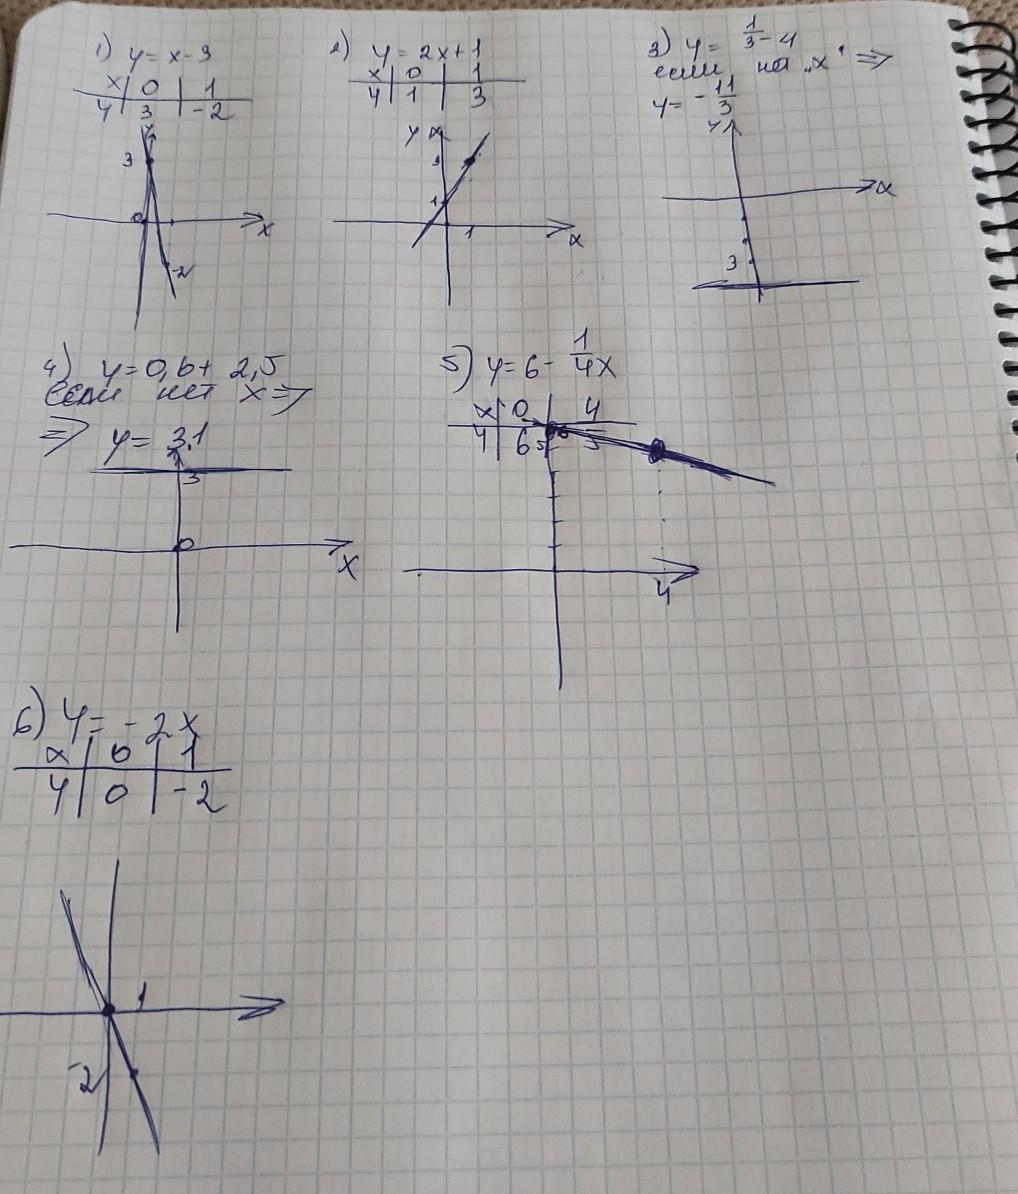 1) y = x - 3
x | 0 | 1
y | 3 | -2
y
3
0
x
-2
2) y = 2x + 1
x | 0 | 1
y | 1 | 3
y x
3
1
1
x
3) y = 1/3 - 4
если на "x" ⇒
y = -11/3
y
x
3
4) y = 0,6 + 2,5
если нет x ⇒
⇒ y = 3,1
3
0
x
5) y = 6 - 1/4x
x | 0 | 4
y | 6 | 5
5
6
4
6) y = -2x
x | 0 | 1
y | 0 | -2
1
-2